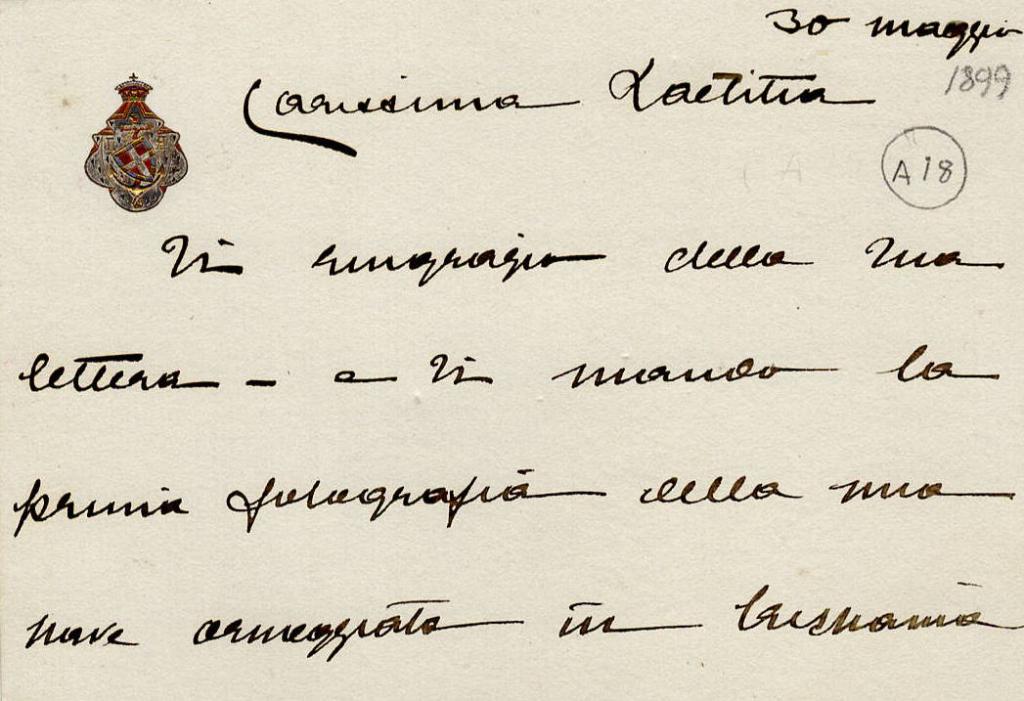 30 maggio
1899
Carissima Laetitia
A 18
Ti ringrazio della tua
lettera - e Ti mando la
prima fotografia della mia
nave ormeggiata in Cristiania